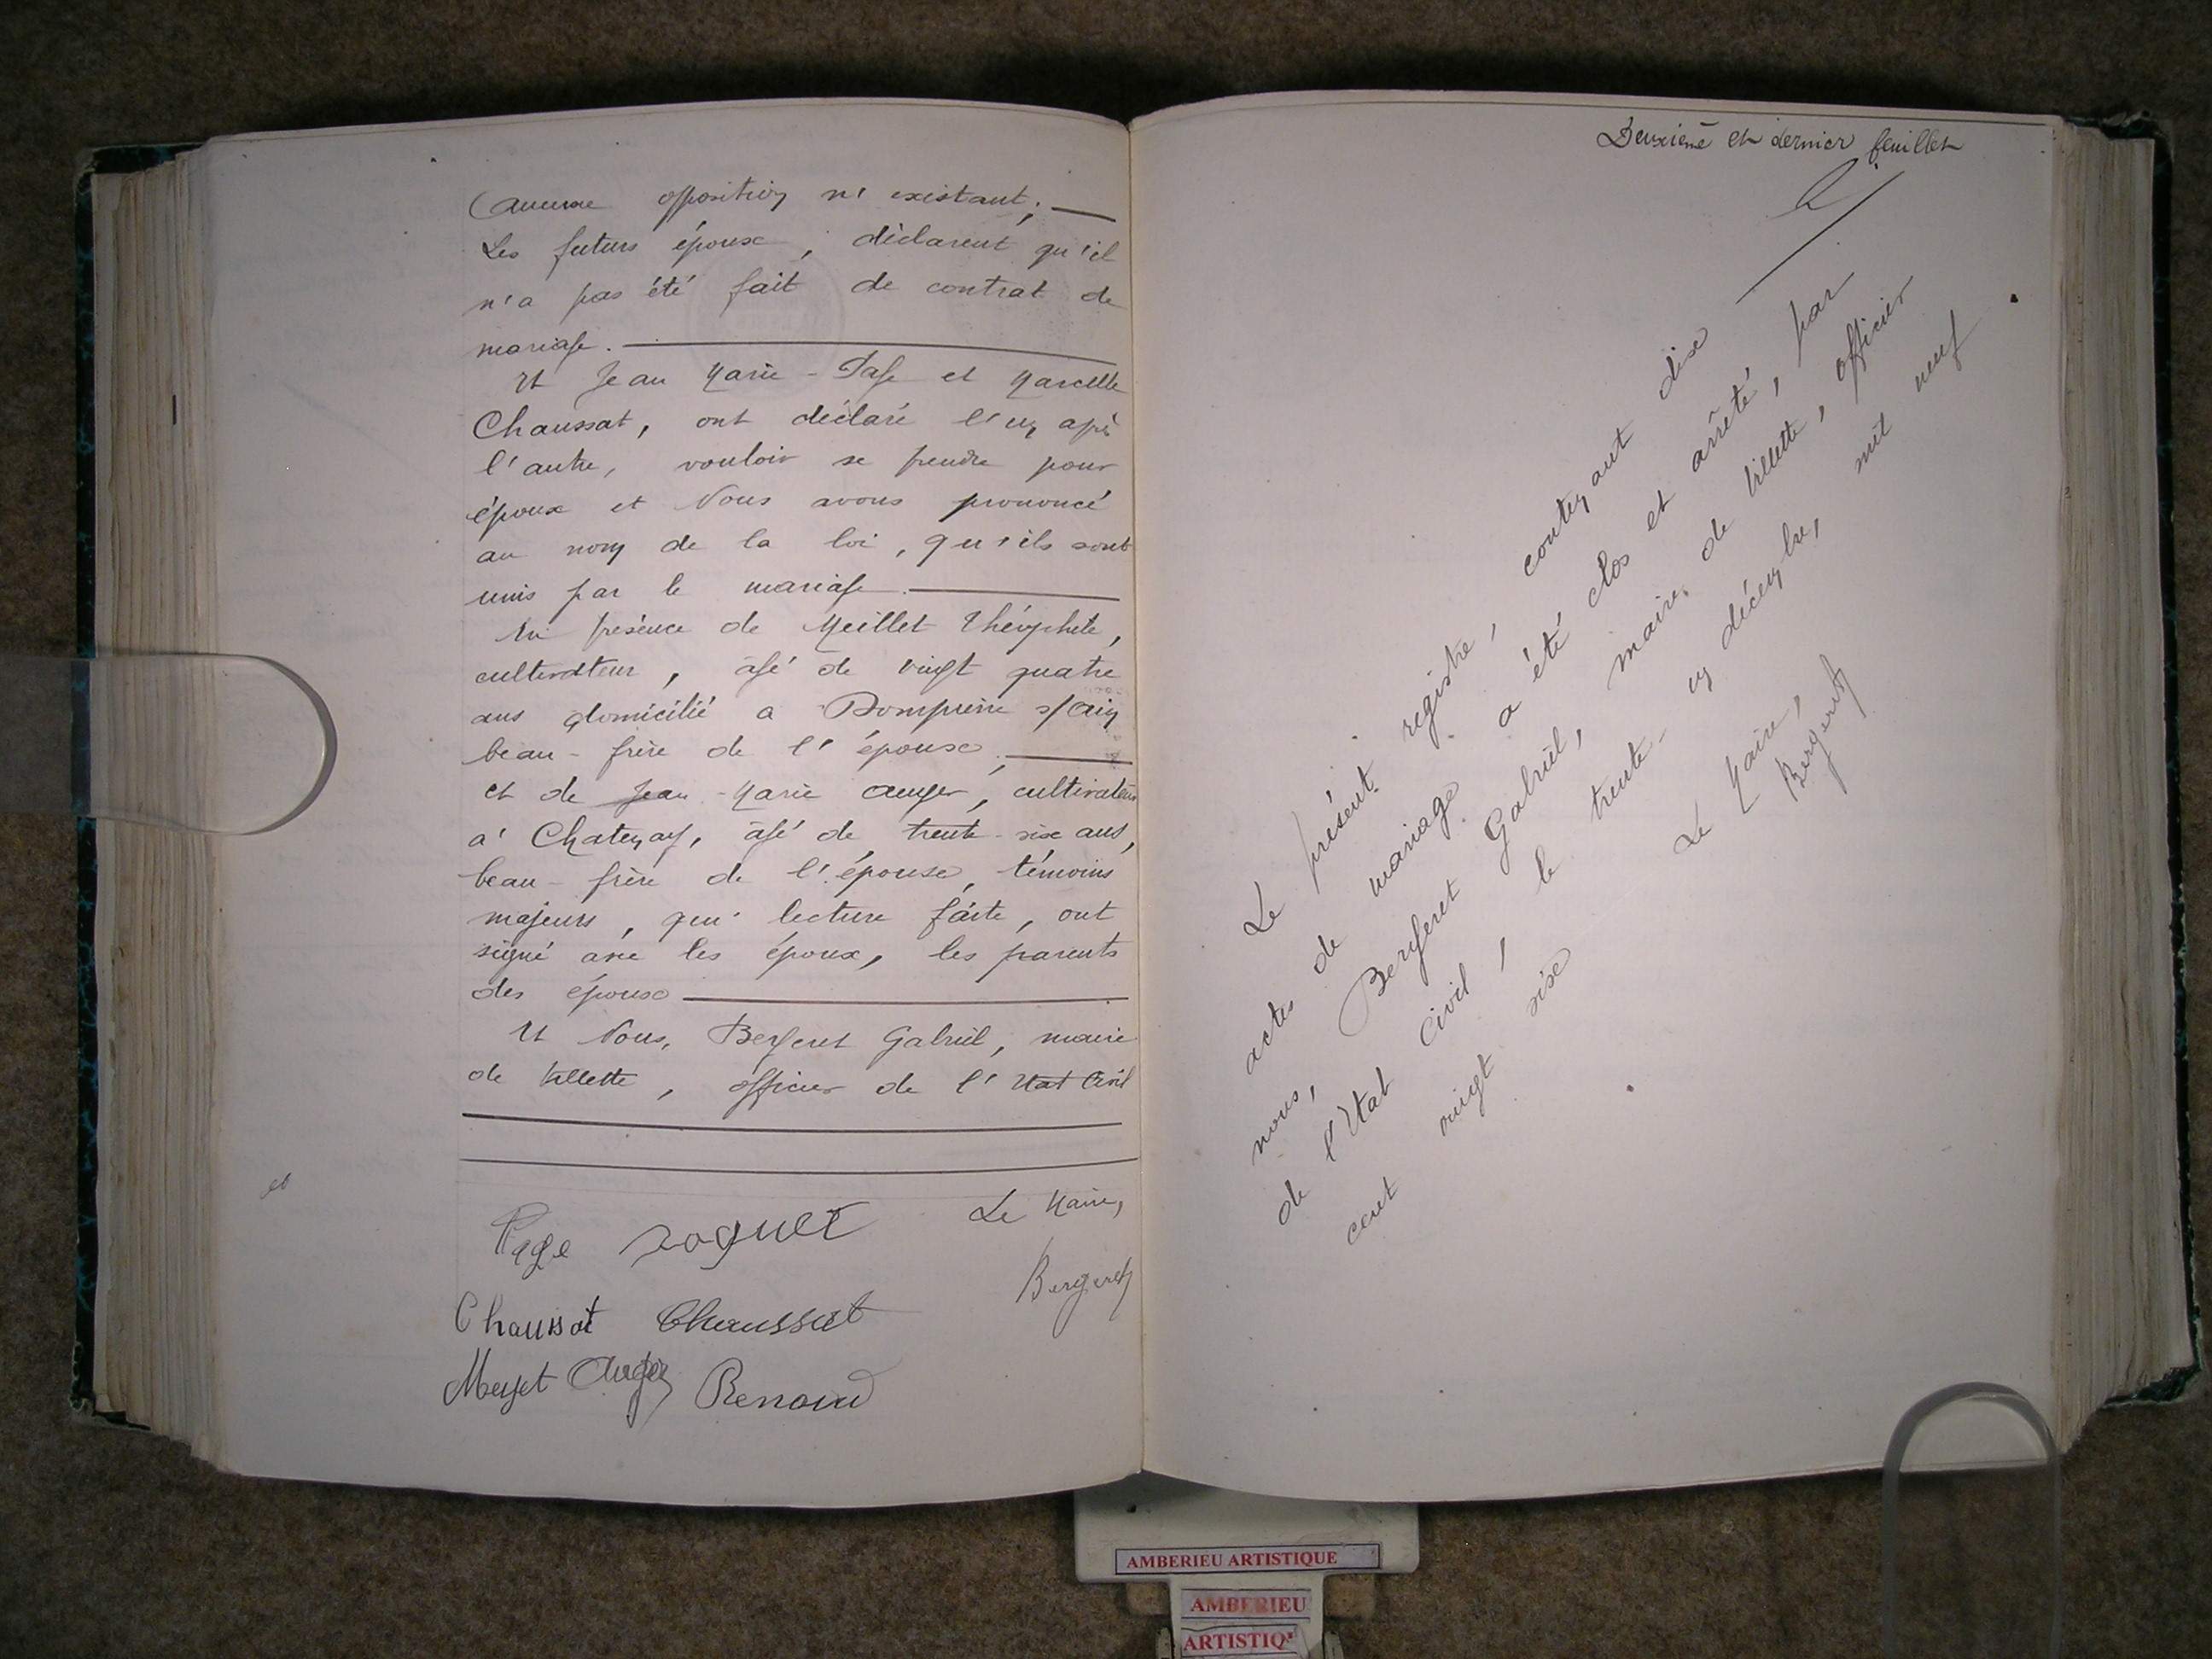 Aucune opposition n'existant;
Les futurs époux, déclarent qu'il
n'a pas été fait de contrat de
mariage.
Et Jean Marie-Page et Marcelle
Chaussat, ont déclaré l'un après
l'autre, vouloir se prendre pour
époux et Nous avons prononcé
au nom de la loi, qu'ils sont
unis par le mariage.
En présence de Meillet Théophile,
cultivateur, âgé de vingt quatre
ans domicilié a Dompierre s/Ain
beau-frère de l'épouse,
et de Jean-Marie Auger, cultivateur
a' Chatenay, âgé de trente-six ans,
beau-frère de l'épouse, témoins
majeurs, qui lecture faite, ont
signé avec les époux, les parents
des époux
Et Nous, Bergeret Gabriel, maire
de Villette, officier de l'Etat Civil
et
Le Maire,
Page
Bergeret
Chaussat Chaussat
Auger Renoud
Deuxième et dernier feuillet
Le présent registre, contenant dix
actes de mariage a été clos et arrêté, par
nous, Bergeret Gabriel, maire de Villette, officier
de l'Etat Civil, le trente-un décembre, mil neuf
cent vingt six
Le Maire,
Bergeret
AMBERIEU ARTISTIQUE
AMBERIEU
ARTISTIQ